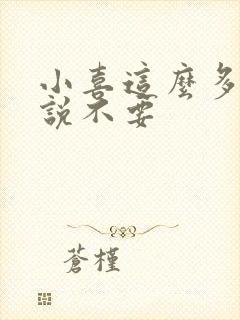 小喜這麼多
說不要
蒼槿